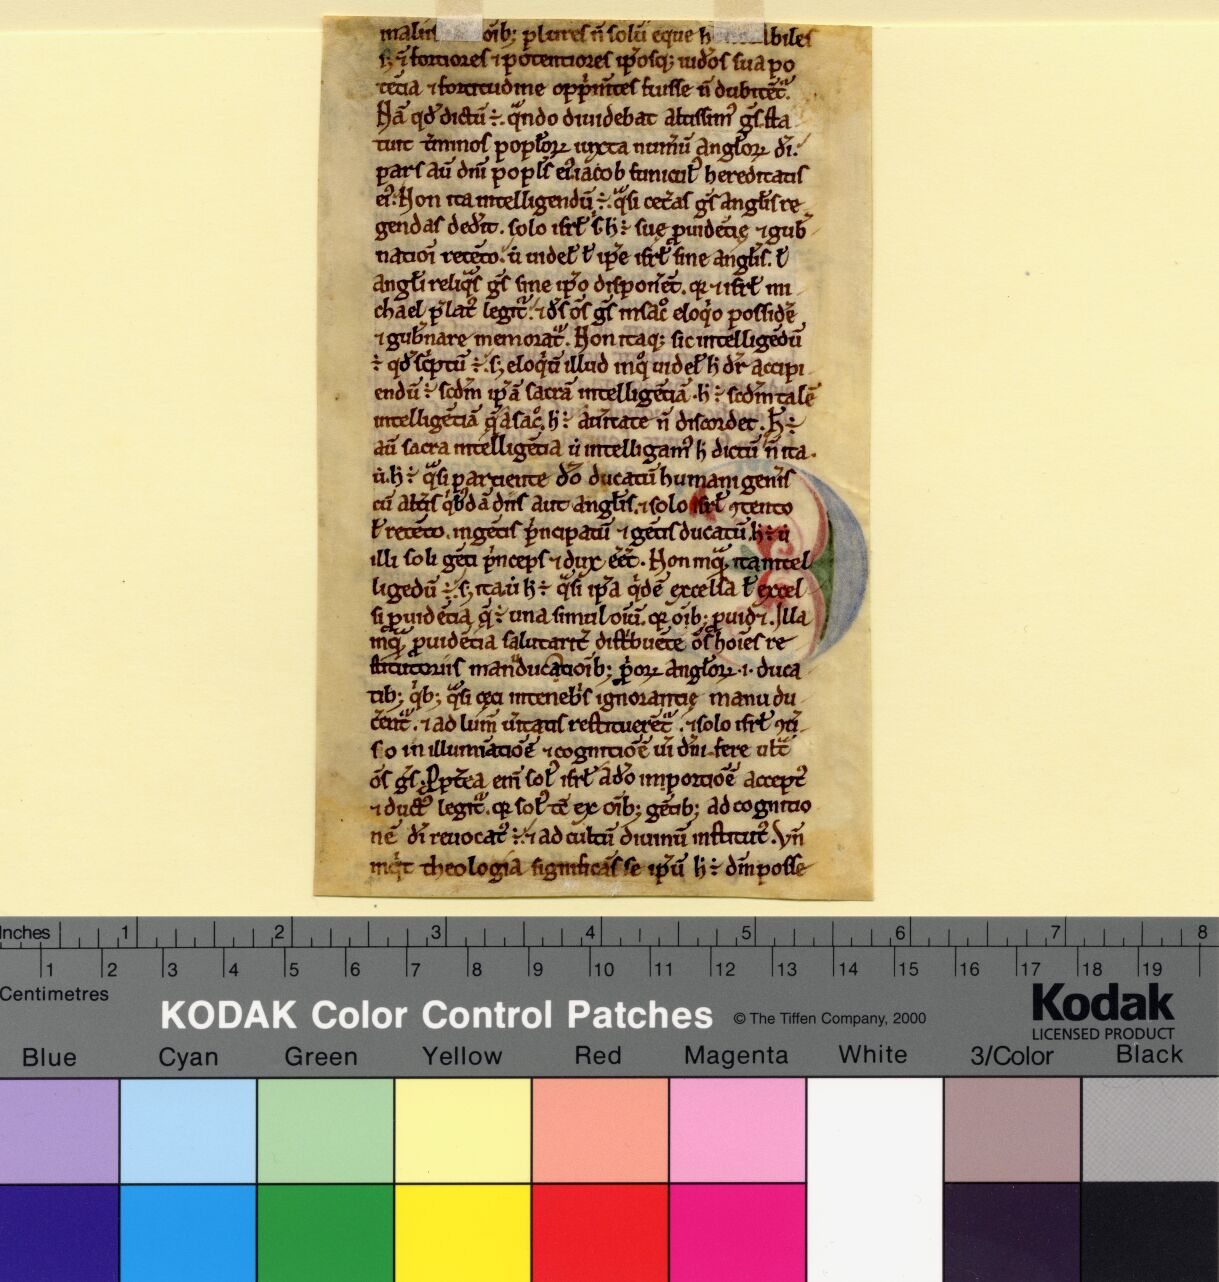 oib; plures n̄ solū eque
s; ⁊ fortiores ⁊ potentiores ip̄osq; iudōs sua po
tētia ⁊ fortitudine opp̄mētes fuisse n̄ dubitēt.
Nā qd̄ dictū ÷. qn̄do diuidebat altissim᷒ gs̄ sta
tuit t̄minos pop̄loꝝ iuxta num̄ū angl̄oꝝ di.
pars aū dn̄i popl̄s ei᷒ iacob funicul᷒ hereditatis
ei᷒. Non ita intelligendū ÷. qͣsi cet̄as gs̄ angl̄is re
gendas dedit. solo isrl̄ s; h ÷ sue p̱uidētie ⁊ gub̄
nationi retēto. ut uidel̄ t̄ ip̄e isrl̄ sine angl̄is. t̄
angl̄i reliqͣs gs̄ sine ip̄o disponēt. qꝛ ⁊ isrl̄ mi
chael p̄lat᷒ legit᷑. ⁊ ds̄ os̄ gs̄ in sac̄o eloqͦo possidē
⁊ gub̄nare memorat᷑. Non itaq; sic intelligēdū
÷ qd̄ sc̄ptū ÷. s; eloqͥū illud inqͦ uidel̄ h dr̄ accipi
endū ÷ scd̄m ip̄ā sacrā intelligētiā. h ÷ scd̄m talē
intelligētiā qͣ a sac̄. h ÷ auc̄tate n̄ discordet. h ÷
aū sacra intelligētia ut intelligam᷒ h dictū n̄ ita.
ut. h ÷ qͣsi partiente dō ducatū humani genis̄
cū aliis qͥbdā diis aut angl̄is. ⁊ solo isrl̄ ꝯtento
t̄ retēto. in gētis p̄ncipatū ⁊ gētis ducatū. h ÷ ut
illi soli gēti p̄nceps ⁊ dux eēt. Non inqͣ. ita intel
ligēdū ÷. s; ita ut h ÷ qͣsi ip̄a qͥdē excelsa t̄ excel
si p̱uidētia q̄ ÷ una simul oīū. qꝛ oīb; p̱uidet. Illa
inqͣ p̱uidētia salutarit᷑ distbuēte os̄ hoīes re
stitutoriis manuducatioīb; p̱oꝝ angl̄oꝝ .i. duca
tib; qͥb; qͣsi ceci in tenebris ignorantie manu du
cent᷑. ⁊ ad lum̄ uitatis restituerēt᷑. ⁊ solo isrl̄ ꝯū̄
so in illuminatioē ⁊ cognitioē ui dn̄i. fere ult̄
os̄ gs̄. Ꝓpt̄ea enī sol᷒ isrl̄ a dō in portioē accept᷒
⁊ duct᷒ legit᷑. qꝛ sol᷒ tc̄ ex oīb; gētib; ad cognitio
nē di reuocat᷒ ÷. ⁊ ad cultū diuinū institut᷒. Vn̄
inqͥt theologia significās se ip̄ū h ÷ dn̄m posse
Inches 1 2 3 4 5 6 7 8
1 2 3 4 5 6 7 8 9 10 11 12 13 14 15 16 17 18 19
Centimetres
KODAK Color Control Patches © The Tiffen Company, 2000
Kodak
LICENSED PRODUCT
Blue Cyan Green Yellow Red Magenta White 3/Color Black